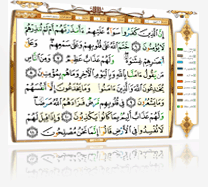 إِنَّ الَّذِينَ كَفَرُوا سَوَاءٌ عَلَيْهِمْ ءَأَنذَرْتَهُمْ أَمْ لَمْ تُنذِرْهُمْ
لَا يُؤْمِنُونَ خَتَمَ اللَّهُ عَلَىٰ قُلُوبِهِمْ وَعَلَىٰ سَمْعِهِمْ وَعَلَىٰ
أَبْصَارِهِمْ غِشَاوَةٌ وَلَهُمْ عَذَابٌ عَظِيمٌ وَمِنَ النَّاسِ
مَن يَقُولُ ءَامَنَّا بِاللَّهِ وَبِالْيَوْمِ الْآخِرِ وَمَا هُم بِمُؤْمِنِينَ
يُخَادِعُونَ اللَّهَ وَالَّذِينَ ءَامَنُوا وَمَا يَخْدَعُونَ إِلَّا أَنفُسَهُمْ
وَمَا يَشْعُرُونَ فِي قُلُوبِهِم مَّرَضٌ فَزَادَهُمُ اللَّهُ مَرَضًا
وَلَهُمْ عَذَابٌ أَلِيمٌ بِمَا كَانُوا يَكْذِبُونَ وَإِذَا قِيلَ لَهُمْ
لَا تُفْسِدُوا فِي الْأَرْضِ قَالُوا إِنَّمَا نَحْنُ مُصْلِحُونَ